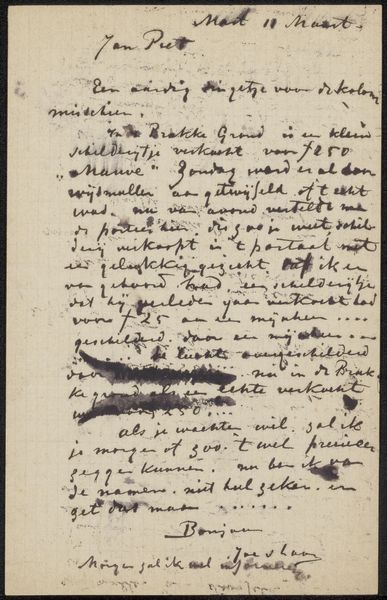 11 Maart.
Jan Piet.
Een aardig dingetje voor de kolom
misschien.
In de Brakke Grond is een klein
schilderijtje verkocht voor f 250
"Mauve" Zondag werd er al door
aan getwijfeld of 't echt
was. nu van avond vertelde me
de portier hier die zoo je weet schil-
derij verkoopt in 't portaal met
een gelukkig gezicht dat ik er
van gehoord had een schilderijtje
dat hij verleden jaar verkocht had
voor f 25 aan een mijnheer ....
geschilderd door een mijnheer ...
overgeschilderd
door nu in de Brak-
ke grond als een echte verkocht
voor 250 ...
als je wachten wil, zal ik
je morgen of zoo 't wel preciezer
zeggen kunnen. nu ben ik van
de namen niet heel zeker. en
get dat maar ......
Bonjour
Morgen zal ik wel